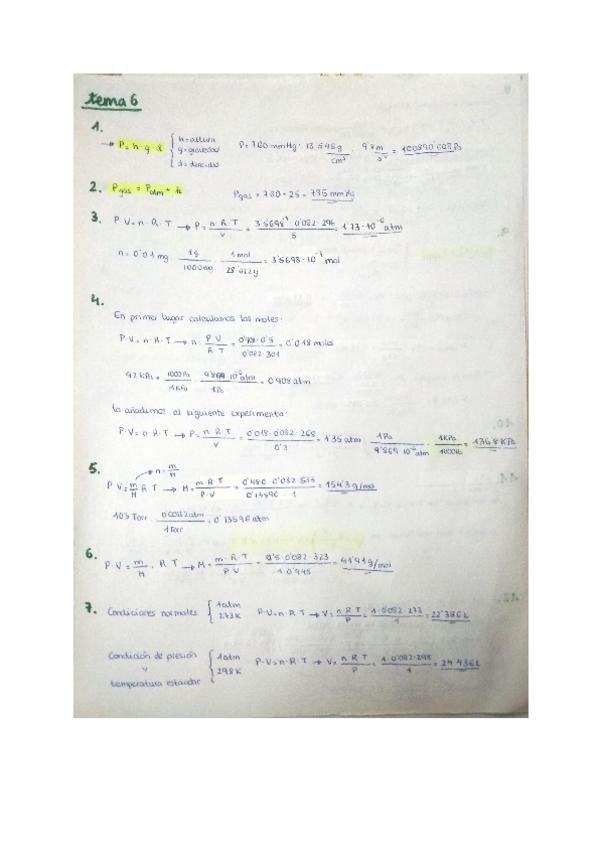 tema 6
1.
→ P = h · g · d { h = altura
g = gravedad
d = densidad
P = 760 mmHg · 13'546g / cm³ · 9'8m / s² =
2. Pgas = Patm + h Pgas = 760 + 25 = 785 mmHg
3. P·V = n·R·T → P = n·R·T / V = 3'5698⁻⁷·0'082·296 / 5 = 1'73·10⁻⁶ atm
n = 0'01 mg · 1g / 1000mg · 1mol / = 3'5698·10⁻⁷ mol
4.
En primer lugar calculamos los moles:
P·V = n·R·T → n = P·V / R·T = / 0'082·301 = 0'018 moles
92 kPa · 1000Pa / 1kPa · 9'869·10⁻⁶ atm / 1Pa = 0'908 atm
lo añadimos al siguiente experimento:
P·V = n·R·T → P = n·R·T / V = 0'018·0'082·268 / = 1'35 atm · 1Pa / 9'869·10⁻⁶ atm · 1kPa / 1000Pa = 136'8 KPa
5. n = m / M
P·V = m / M R·T → M = m·R·T / P·V = / = 154'3 g/mol
103 Torr · / 1 Torr = 0'13596 atm
6.
P·V = m / M · R·T → M = m·R·T / P·V = / 1·0'945 =
7. Condiciones normales { 1atm
273K P·V = n·R·T → V = n·R·T / P = 1·0'082·273 / 1 = 22'386L
Condición de presión
y
temperatura estandar { 1atm
298K P·V = n·R·T → V = n·R·T / P = 1·0'082·298 / 1 = 24'436L